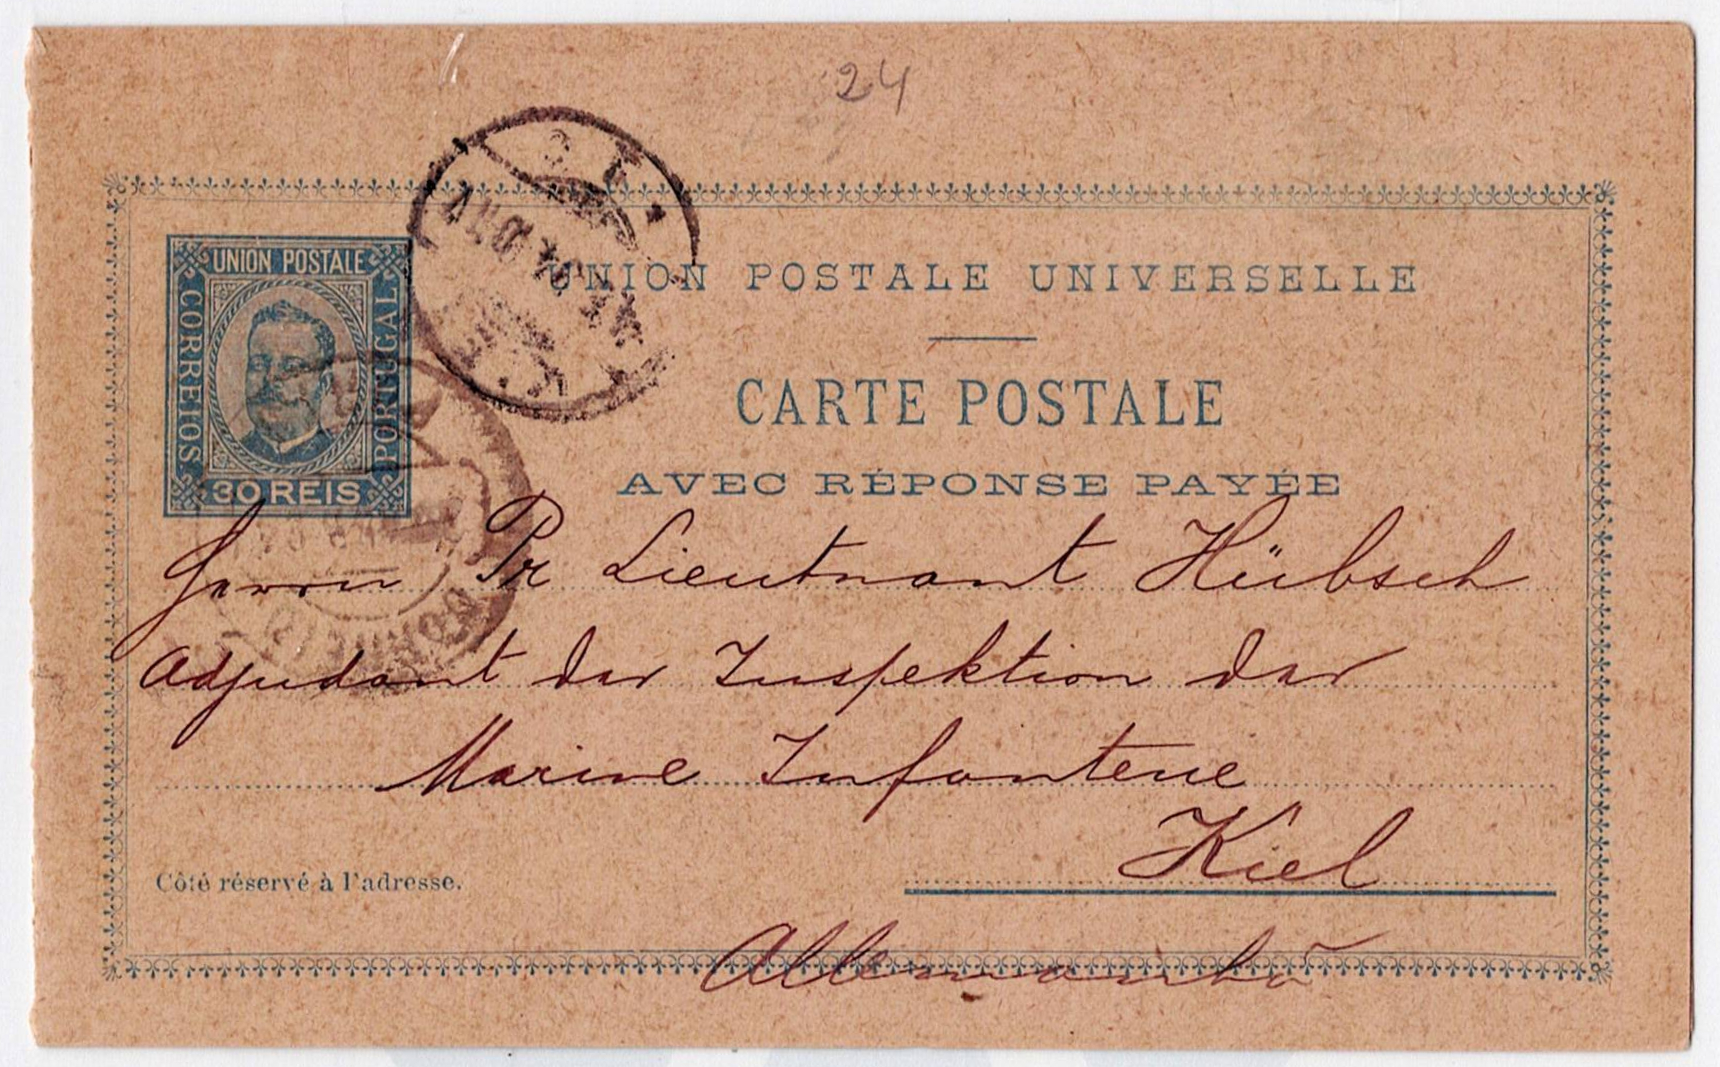 24
UNION POSTALE
CORREIOS
PORTUGAL
30 REIS
UNION POSTALE UNIVERSELLE
CARTE POSTALE
AVEC RÉPONSE PAYÉE
Herrn Pr Lieutnant Hübsch
Adjudant der Inspektion der
Marine Infanterie
Kiel
Côté réservé à l'adresse.
Allemanhã
CORREIO